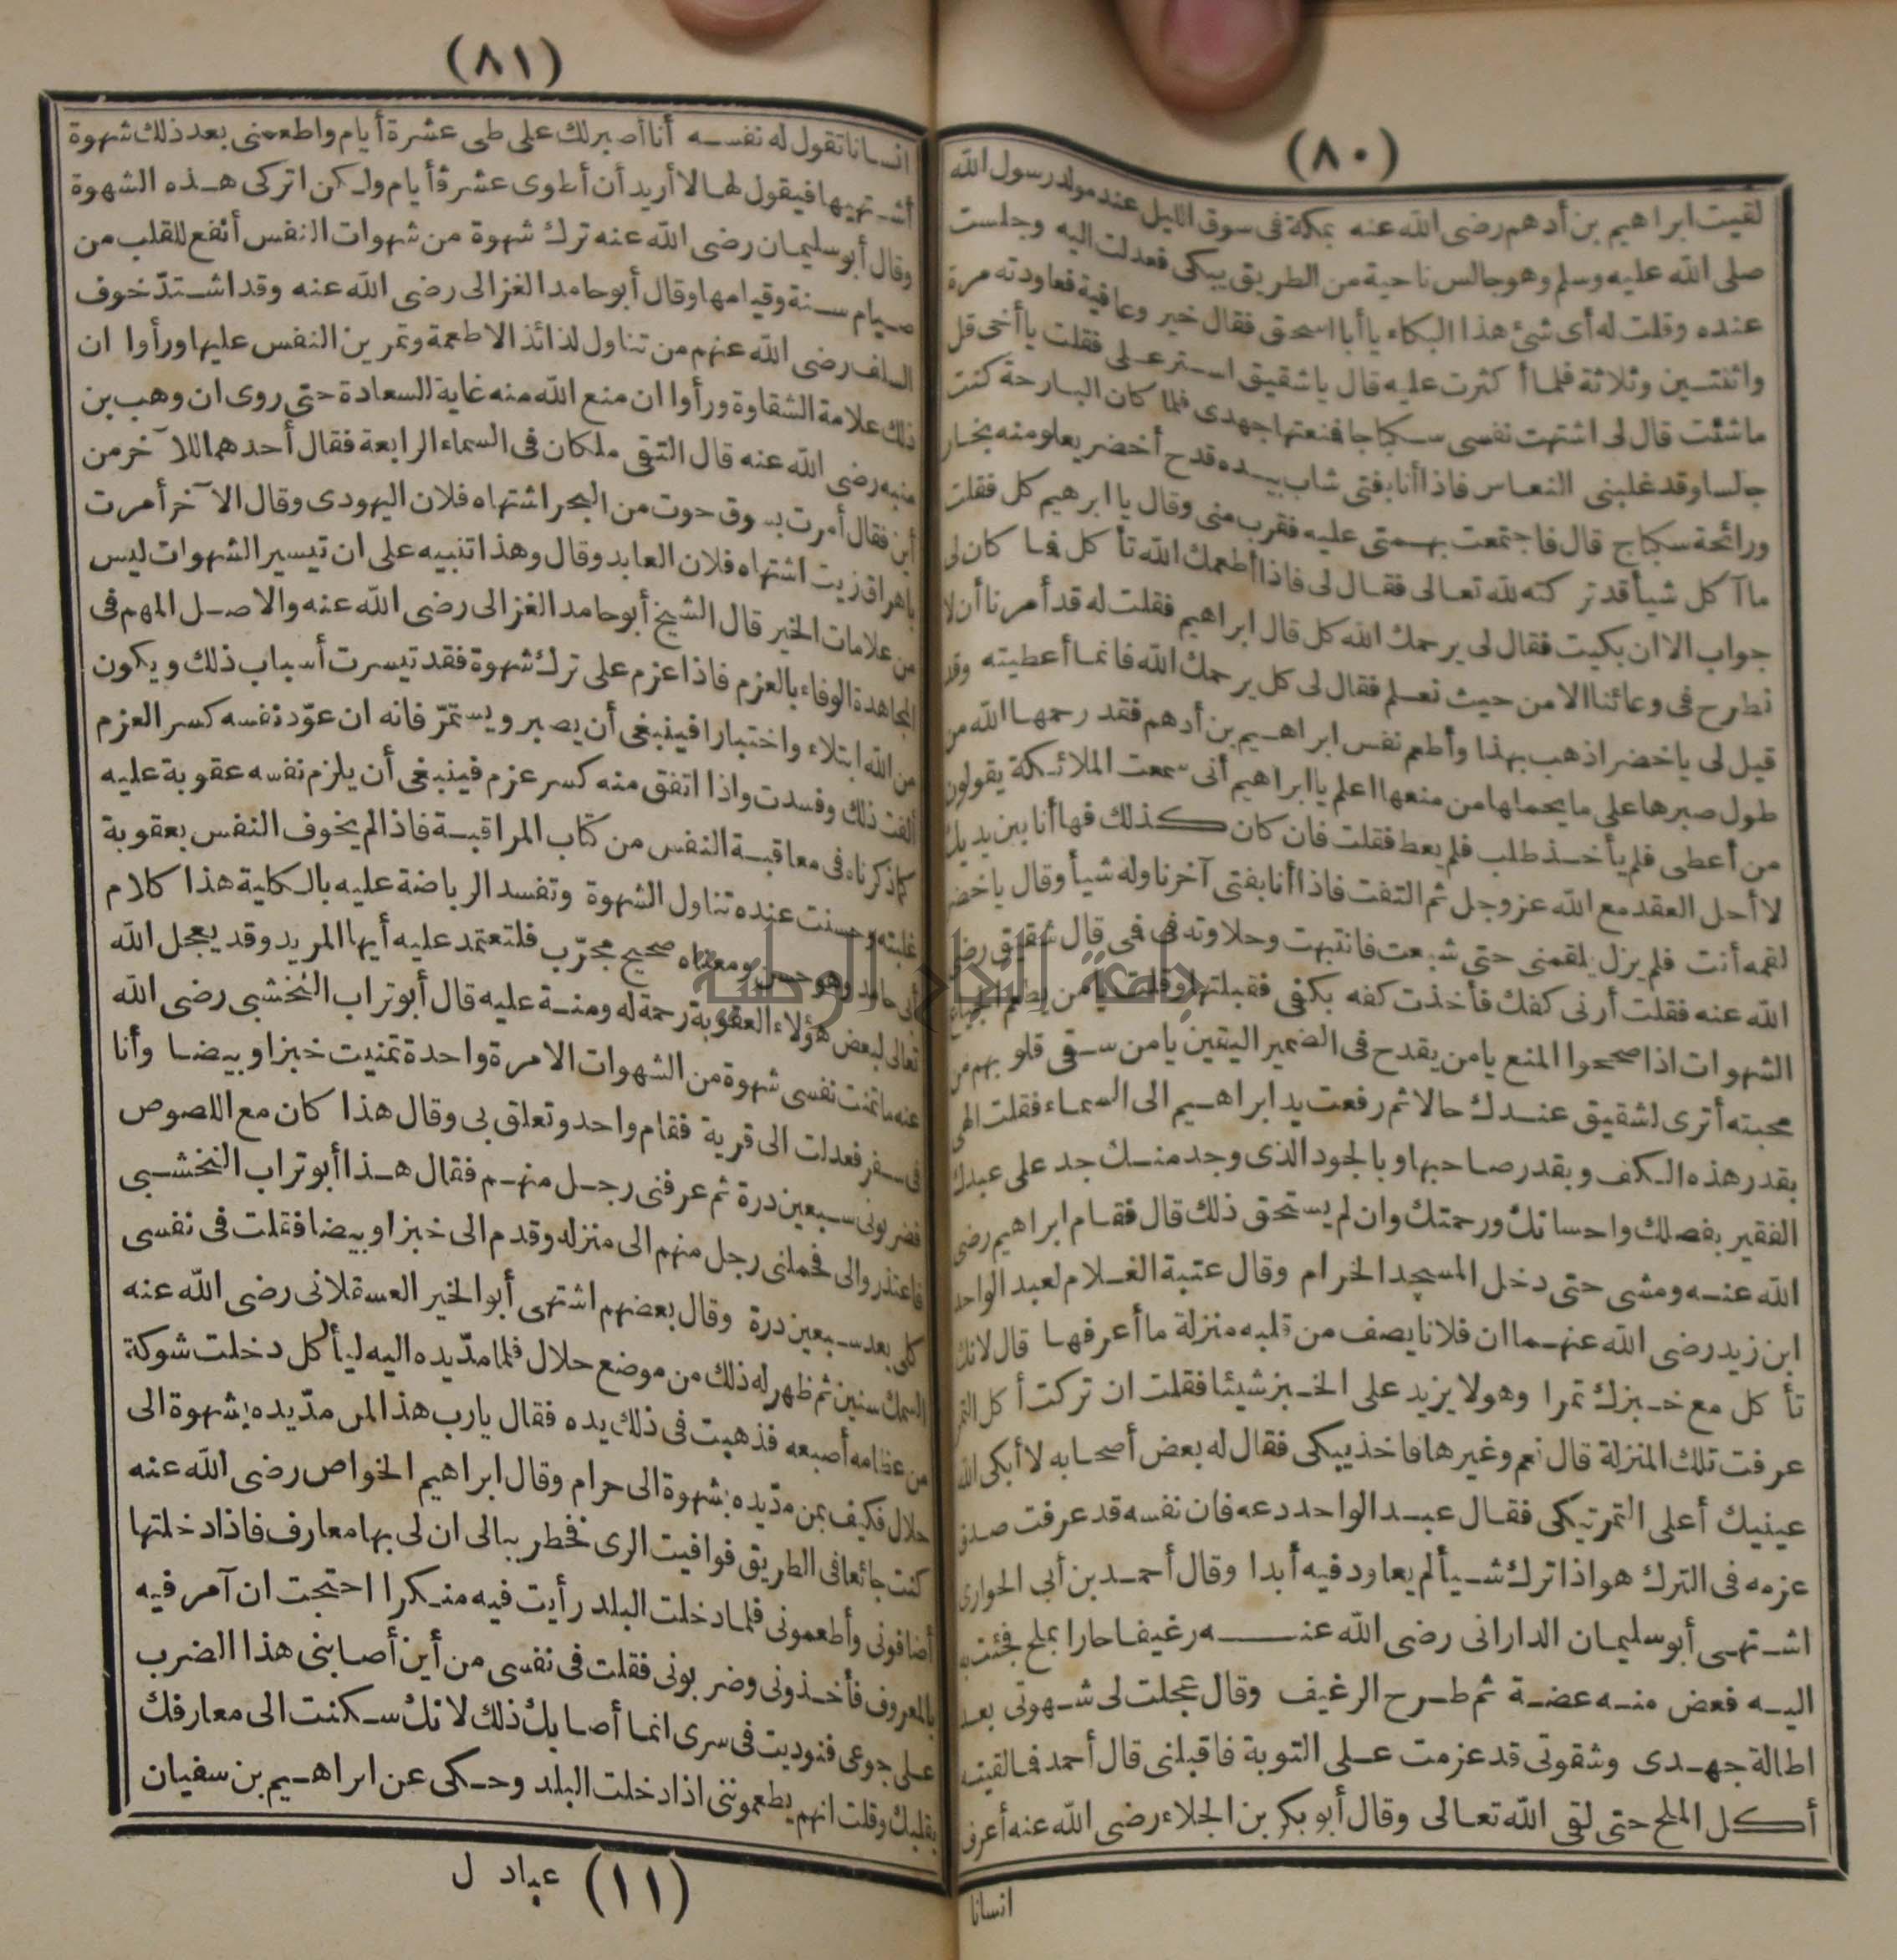 (٨٠)
لقيت ابراهيم بن أدهم رضى الله عنه بمكة فى سوق الليل عند مولد رسول الله
صلى الله عليه وسلم وهو جالس ناحية من الطريق يبكى فعدلت اليه وجلست
عنده وقلت له أى شئ هذا البكاء يا أبا اسحق فقال خير وعافية فعاودته مرة
واثنتين وثلاثة فلما أكثرت عليه قال ياشقيق استر على فقلت يا أخى قل
ماشئت قال لى اشتهت نفسى سكباجا فمنعتها جهدى فلما كان البارحة كنت
جالسا وقد غلبنى النعاس فاذا أنا بفتى شاب بيده قدح أخضر يعلو منه بخار
ورائحة سكباج قال فاجتمعت بهمتى عليه فقرب منى وقال يا ابرهيم كل فقلت
ما آكل شيأ قد تركته لله تعالى فقال لى فاذا أطعمك الله تأكل فما كان لى
جواب الا ان بكيت فقال لى يرحمك الله كل قال ابراهيم فقلت له قد أمرنا أن لا
نطرح فى وعائنا الا من حيث نعلم فقال لى كل يرحمك الله فانما أعطيته وقد
قيل لى ياخضر اذهب بهذا وأطعم نفس ابراهيم بن أدهم فقد رحمها الله من
طول صبرها على مايحملها من منعها اعلم يا ابراهيم أنى سمعت الملائكة يقولون
من أعطى فلم يأخذ طلب فلم يعط فقلت فان كان كذلك فها أنا بين يديك
لا أحل العقد مع الله عز وجل ثم التفت فاذا أنا بفتى آخر ناوله شيأ وقال ياخضر
لقمه أنت فلم يزل يلقمنى حتى شبعت فانتبهت وحلاوته فى فى قال شقيق رضى
الله عنه فقلت أرنى كفك فأخذت كفه بكفى فقبلتها وقلت يا من يطعم الجياع
الشهوات اذا صححوا المنع يامن يقدح فى الضمير اليقين يا من سقى قلوبهم من
محبته أترى لشقيق عندك حالا ثم رفعت يد ابراهيم الى السماء فقلت الهى
بقدر هذه الكف وبقدر صاحبها وبالجود الذى وجد منك جد على عبدك
الفقير بفضلك واحسانك ورحمتك وان لم يستحق ذلك قال فقام ابراهيم رضى
الله عنه ومشى حتى دخل المسجد الحرام وقال عتبة الغلام لعبد الواحد
ابن زيد رضى الله عنهما ان فلانا يصف من قلبه منزلة ما أعرفها قال لانك
تأكل مع خبزك تمرا وهو لا يزيد على الخبز شيئا فقلت ان تركت أكل التمر
عرفت تلك المنزلة قال نعم وغيرها فاخذ يبكى فقال له بعض أصحابه لا أبكى الله
عينيك أعلى التمر تبكى فقال عبد الواحد دعه فان نفسه قد عرفت صدق
عزمه فى الترك هو اذا ترك شيأ لم يعاود فيه أبدا وقال أحمد بن أبى الحوارى
اشتهى أبو سليمان الدارانى رضى الله عنه رغيفا حارا بملح فجئت به
اليه فعض منه عضة ثم طرح الرغيف وقال عجلت لى شهوتى بعد
اطالة جهدى وشقوتى قد عزمت على التوبة فاقبلنى قال أحمد فما لقيته
أكل الملح حتى لقى الله تعالى وقال أبو بكر بن الجلاء رضى الله عنه أعرف
انسانا
(٨١)
انسانا تقول له نفسه أنا أصبر لك على طى عشرة أيام واطعمنى بعد ذلك شهوة
أشتهيها فيقول لها لا أريد أن أطوى عشرة أيام ولكن اتركى هذه الشهوة
وقال أبو سليمان رضى الله عنه ترك شهوة من شهوات النفس أنفع للقلب من
صيام سنة وقيامها وقال أبو حامد الغزالى رضى الله عنه وقد اشتد خوف
السلف رضى الله عنهم من تناول لذائذ الاطعمة وتمرين النفس عليها ورأوا ان
ذلك علامة الشقاوة ورأوا ان منع الله منه غاية السعادة حتى روى ان وهب بن
منبه رضى الله عنه قال التقى ملكان فى السماء الرابعة فقال أحدهما للآخر من
أين فقال أمرت بسوق حوت من البحر اشتهاه فلان اليهودى وقال الآخر أمرت
باهراق زيت اشتهاه فلان العابد وقال وهذا تنبيه على ان تيسير الشهوات ليس
من علامات الخير قال الشيخ أبو حامد الغزالى رضى الله عنه والاصل المهم فى
المجاهدة الوفاء بالعزم فاذا عزم على ترك شهوة فقد تيسرت أسباب ذلك ويكون
من الله ابتلاء واختبارا فينبغى أن يصبر ويستمرّ فانه ان عوّد نفسه كسر العزم
ألفت ذلك وفسدت واذا اتفق منه كسر عزم فينبغى أن يلزم نفسه عقوبة عليه
كما ذكرناه فى معاقبة النفس من كتاب المراقبة فاذا لم يخوف النفس بعقوبة
غلبته وحسنت عنده تناول الشهوة وتفسد الرياضة عليه بالكلية هذا كلام
أبى حامد وهو حسن ومعناه صحيح مجرّب فلتعتمد عليه أيها المريد وقد يعجل الله
تعالى لبعض هؤلاء العقوبة رحمة له ومنة عليه قال أبو تراب النخشبى رضى الله
عنه ما تمنت نفسى شهوة من الشهوات الا مرة واحدة تمنيت خبزا وبيضا وأنا
فى سفر فعدلت الى قرية فقام واحد وتعلق بى وقال هذا كان مع اللصوص
فضربونى سبعين درة ثم عرفنى رجل منهم فقال هذا أبو تراب النخشبى
فاعتذروا الى فحملنى رجل منهم الى منزله وقدم الى خبزا وبيضا فقلت فى نفسى
كلى بعد سبعين درة وقال بعضهم اشتهى أبو الخير العسقلانى رضى الله عنه
السمك سنين ثم ظهر له ذلك من موضع حلال فلما مدّ يده اليه ليأكل دخلت شوكة
من عظامه أصبعه فذهبت فى ذلك يده فقال يارب هذا لمن مدّ يده بشهوة الى
حلال فكيف بمن مدّ يده بشهوة الى حرام وقال ابراهيم الخواص رضى الله عنه
كنت جائعا فى الطريق فوافيت الرى فخطر ببالى ان لى بها معارف فاذا دخلتها
أضافونى وأطعمونى فلما دخلت البلد رأيت فيه منكرا احتجت ان آمر فيه
بالمعروف فأخذونى وضربونى فقلت فى نفسى من أين أصابنى هذا الضرب
على جوعى فنوديت فى سرى انما أصابك ذلك لانك سكنت الى معارفك
بقلبك وقلت انهم يطعموننى اذا دخلت البلد وحكى عن ابراهيم بن سفيان
(١١) عباد ل
جامعة النجاح الوطنية